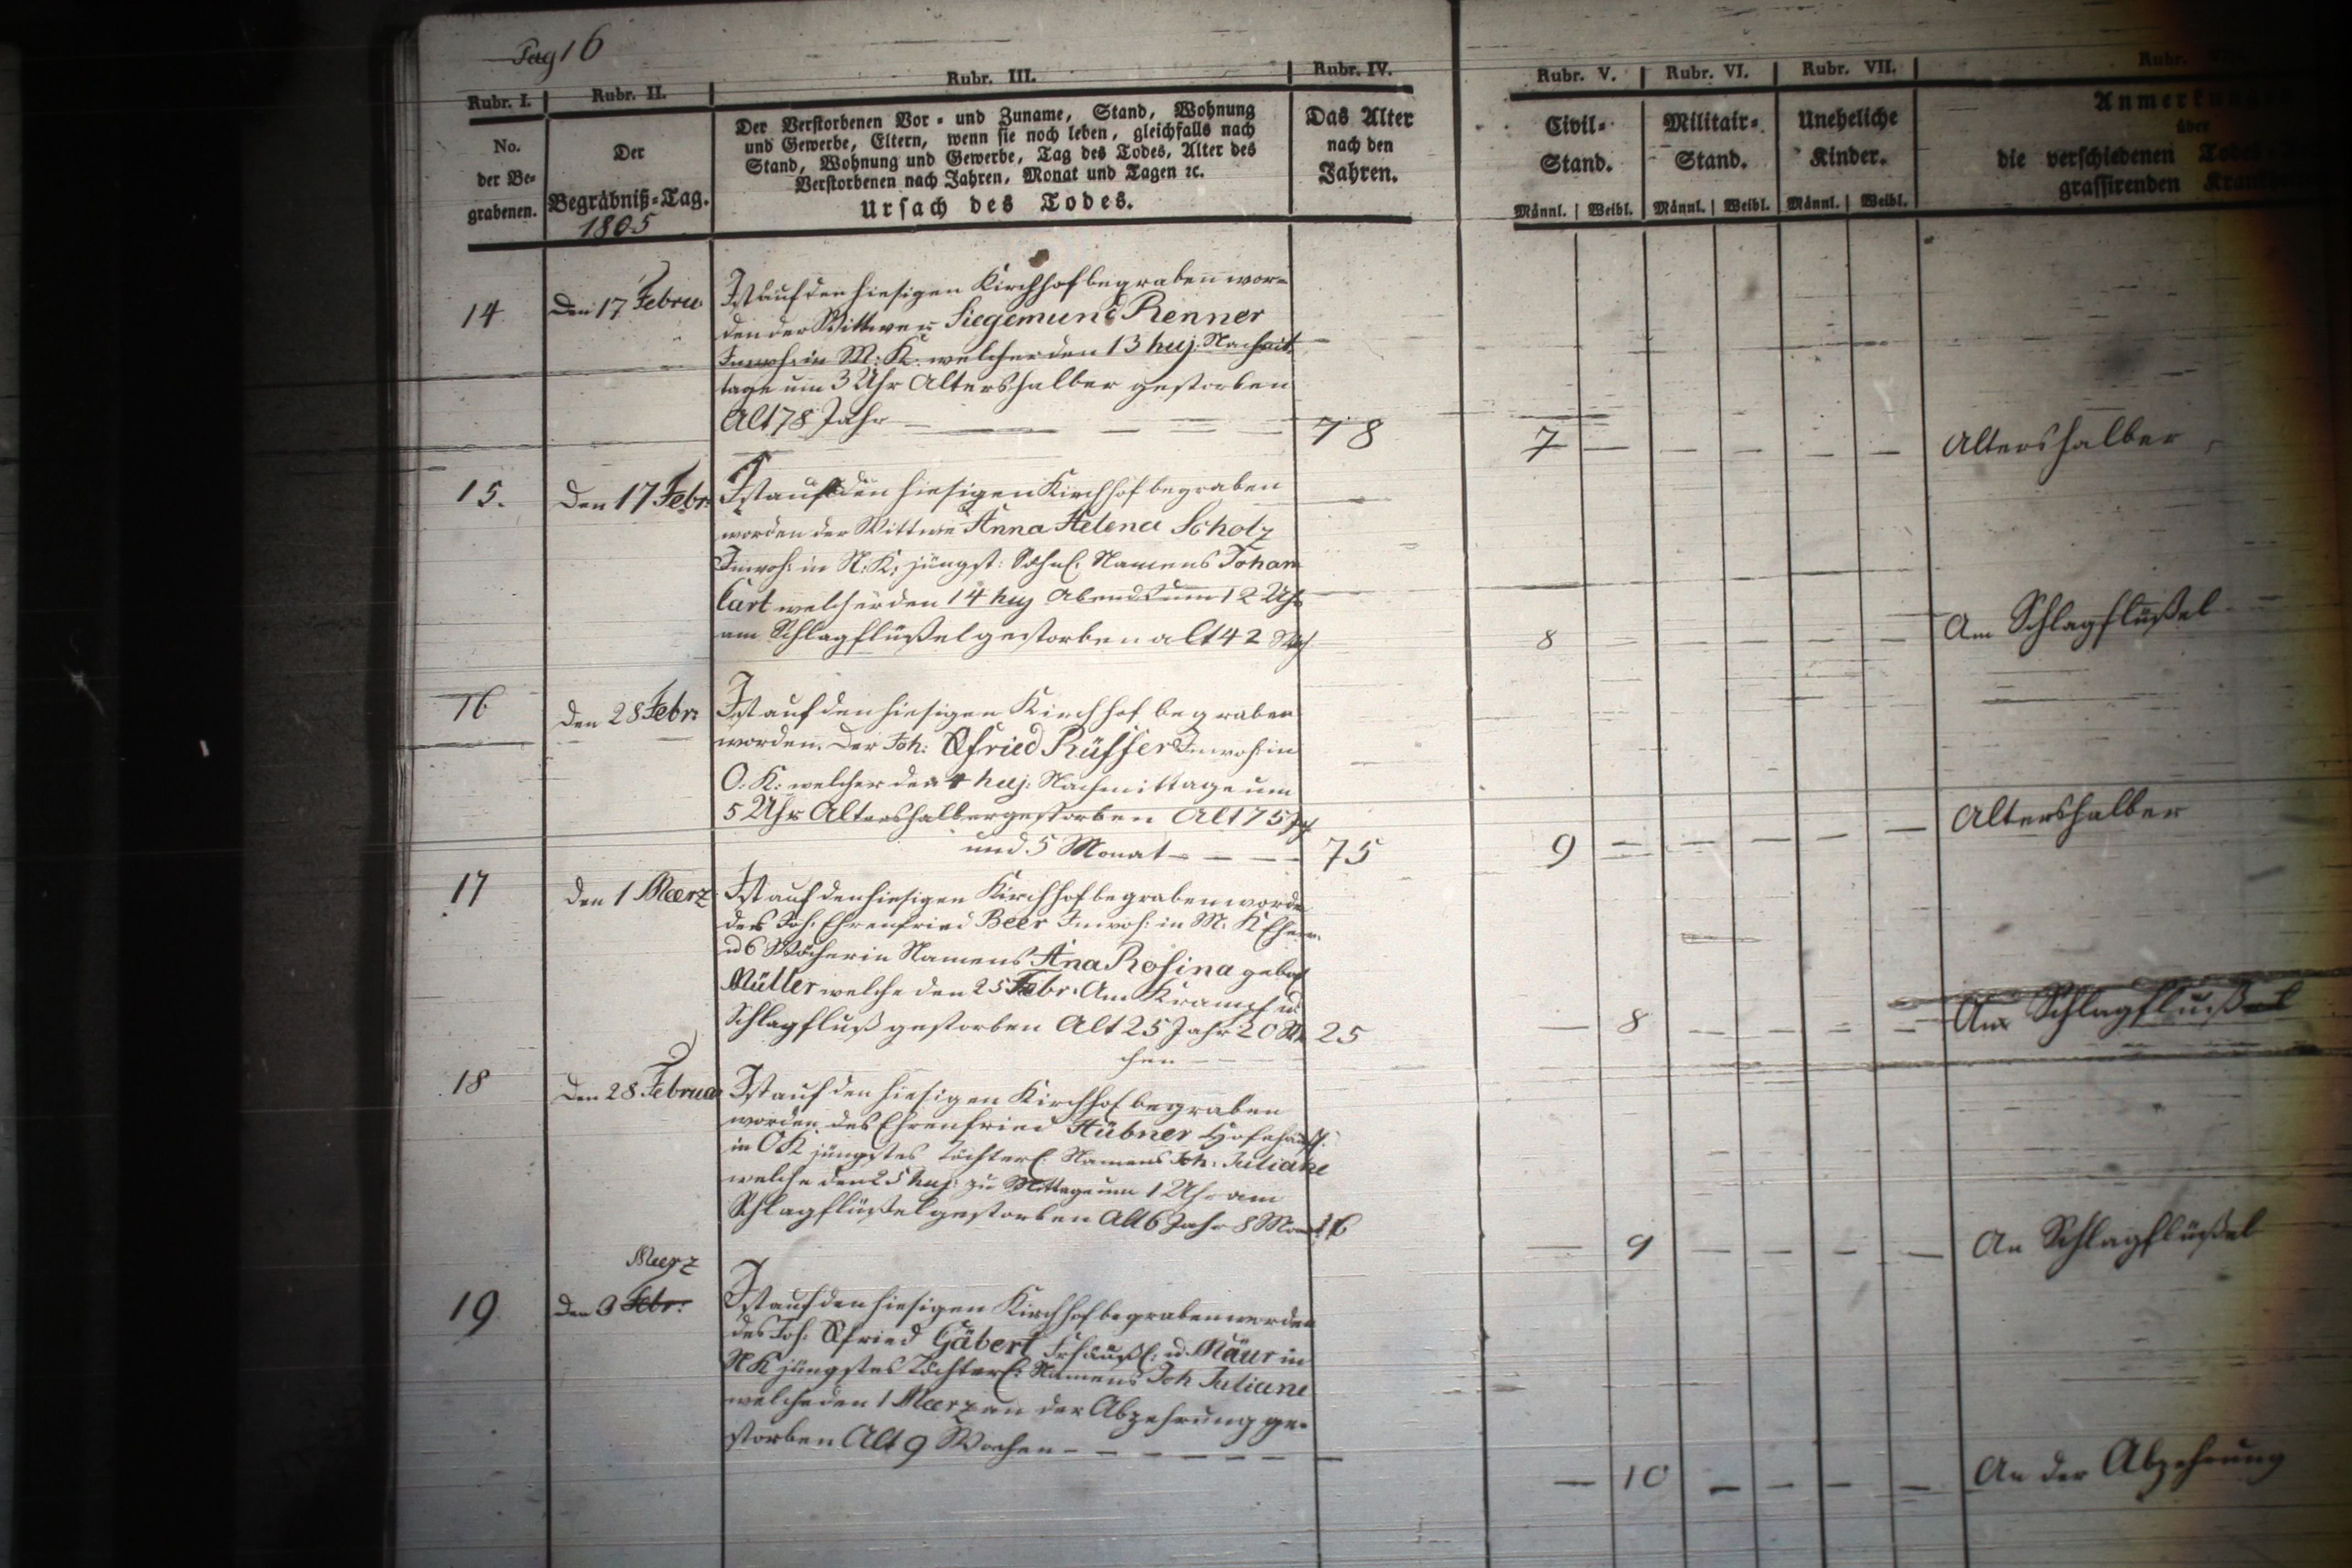 Pag 16
Rubr. I. Rubr. II. Rubr. III. Rubr. IV. Rubr. V. Rubr. VI. Rubr. VII. Rubr.
No.
der Be-
grabenen.
Der
Begräbniß-Tag.
1805
Der Verstorbenen Vor- und Zuname, Stand, Wohnung
und Gewerbe, Eltern, wenn sie noch leben, gleichfalls nach
Stand, Wohnung und Gewerbe, Tag des Todes, Alter des
Verstorbenen nach Jahren, Monat und Tagen ꝛc.
Ursach des Todes.
Das Alter
nach den
Jahren.
Civil-
Stand.
Männl. Weibl.
Militair-
Stand.
Männl. Weibl.
Uneheliche
Kinder.
Männl. Weibl.
Anmerkungen
über
die verschiedenen Todes-
grassirenden
14
Den 17 Febru
Ist auf den hiesigen Kirchhof begraben wor-
den der Wittwer Siegemund Renner
Inwoh: in M: K. welcher den 13 huj. Nachmit-
tage um 3 Uhr Altershalber gestorben
Alt 78 Jahr
78
7 — — — — —
Altershalber
15.
Den 17 Febr:
Ist auf den hiesigen Kirchhof begraben
worden der Wittwe Anna Helena Scholz
Inwoh: in N: K: jüngst: Söhnl: Namens Johan
Carl welcher den 14 huj Abends um 12 Uhr
am Schlagflüßel gestorben alt 42
8 — — — — —
Am Schlagflüßel
16
Den 28 Febr:
Ist auf den hiesigen Kirchhof begraben
worden. Der Joh: Gfried Rüffer Inwoh in
O. K: welcher den 4 huj: Nachmittage um
5 Uhr Altershalber gestorben Alt 75
und 5 Monat — — —
75
9 — — — — —
Altershalber
17
Den 1 Maerz
Ist auf den hiesigen Kirchhof begraben worde
des Joh. Ehrenfried Beer Inwoh: in M. K
6 Wöcherin Namens Ana Rosina gebor
Müller welche den 25 Febr. Am Krampf u
Schlagfluß gestorben Alt 25 Jahr 20 Wo
chen —
25
— 8 — — — —
Am Schlagflußel
18
Den 28 Februar
Ist auf den hiesigen Kirchhof begraben
worden des Ehrenfried Hübner Hofehäusl.
in O K jüngstes Töchterl: Namens Joh: Juliane
welche den 25 huj: zu Mittage um 1 Uhr am
Schlagflüßel gestorben Alt 6 Jahr 8 Mona
— 9 — — — —
An Schlagflüßel
19
Maerz
Den 3 Febr:
Ist auf den hiesigen Kirchhof begraben worden
des Joh. Gfried Gäbert Frhäußl: u. Mäur in
N K jüngstes Töchterl: Namens Joh Juliane
welche den 1 Maerz an der Abzehrung ge-
storben Alt 9 Wochen — — — — —
— 10 — — — —
An der Abzehrung